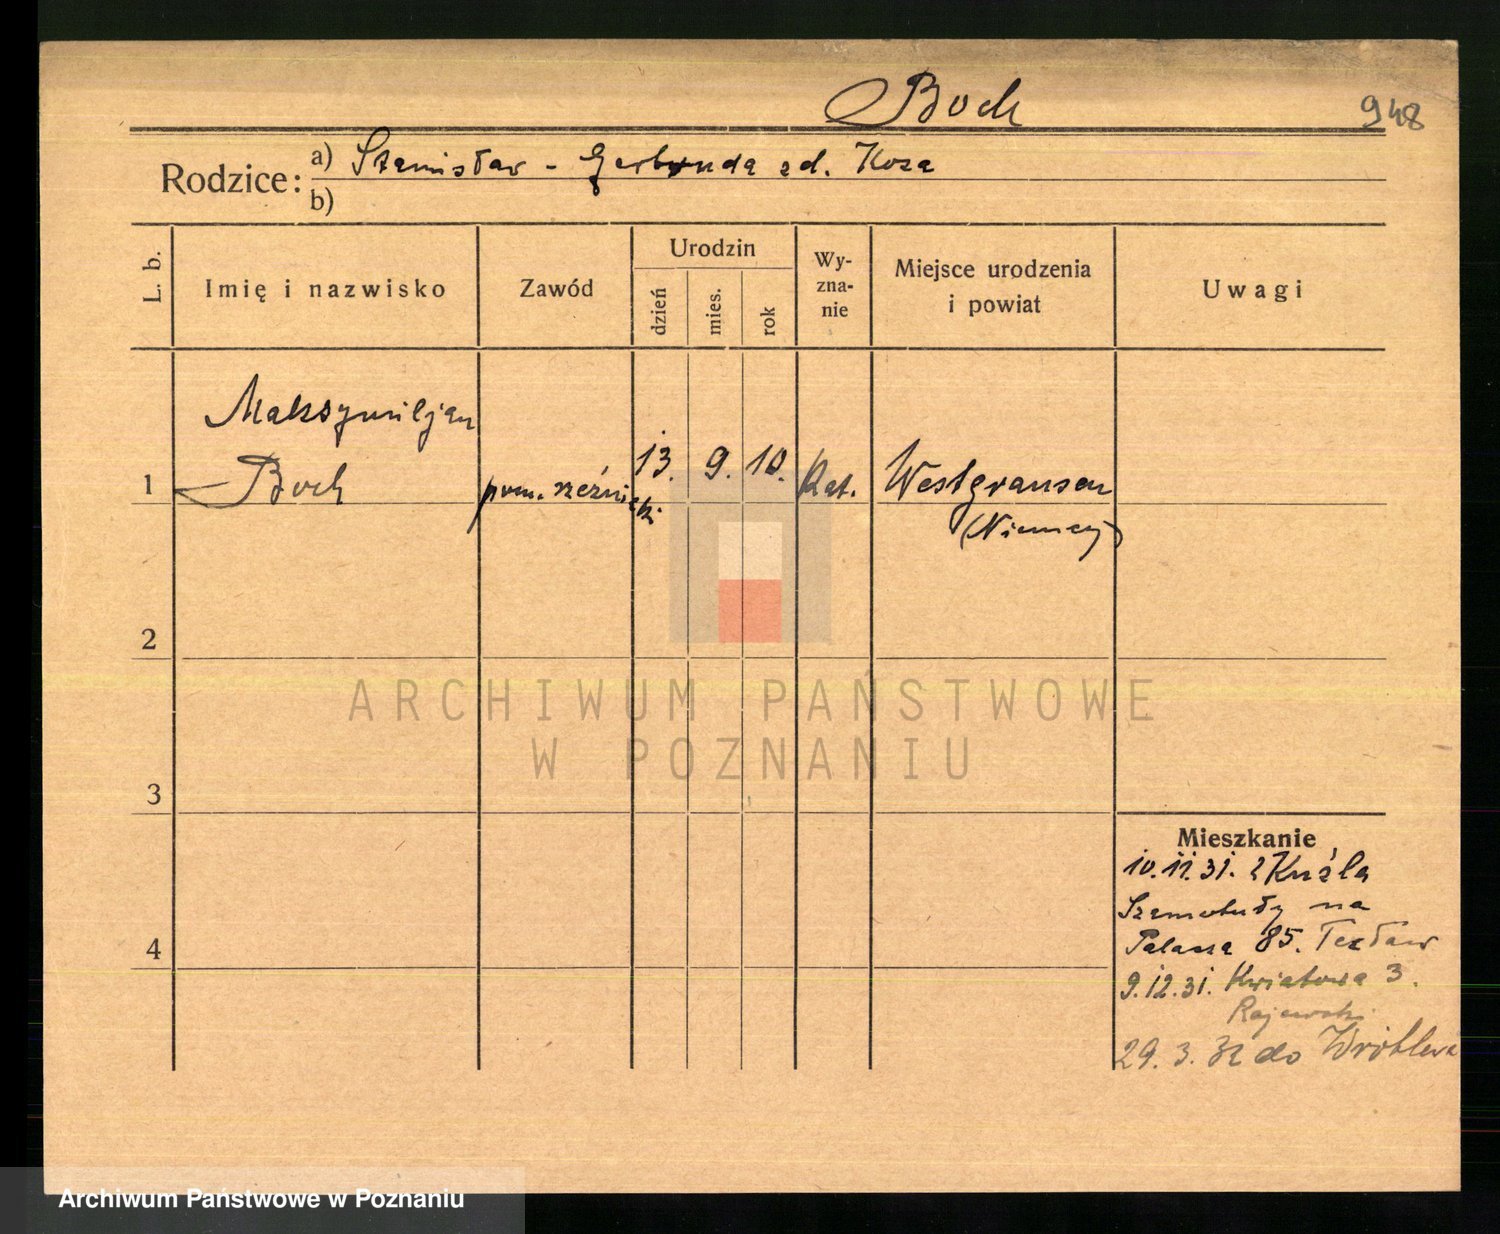 Boch
948
Rodzice: a) Stanisław - Gertruda zd. Koza
b)
L. b.
Imię i nazwisko
Zawód
Urodzin
dzień
mies.
rok
Wy-
zna-
nie
Miejsce urodzenia
i powiat
Uwagi
Maksymiljan
1 Boch pom. rzeźnicki 13. 9. 10. Kat. Westgrausen
(Niemcy)
2
3
4
Mieszkanie
10.11.31. z Kuźla
Szamotuły na
Palacza 85. Tecław
9.12.31. Kwiatowa 3.
Rajewski
29. 3. 32 do Wróblewa
ARCHIWUM PAŃSTWOWE
W POZNANIU
Archiwum Państwowe w Poznaniu